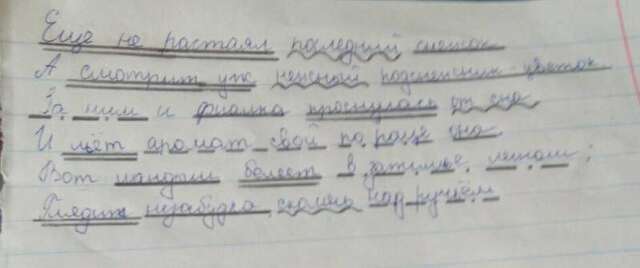 Еще не растаял последний снежок
А смотрит уж нежный подснежник цветок
За ним и фиалка проснулась от сна
И льёт аромат свой по роще она
Вот ландыш белеет в затишье лесном;
Глядит незабудка над ручьём